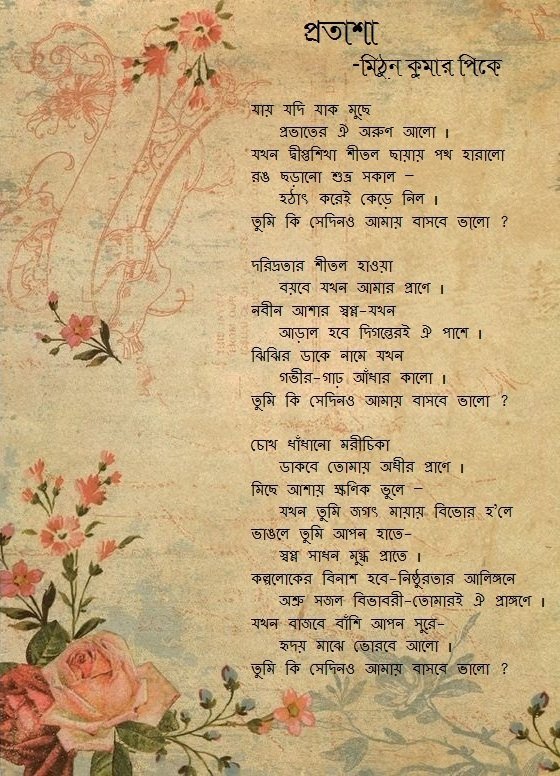 প্রতাশা
-মিঠুন কুমার পিকে
যায় যদি যাক মুছে
প্রভাতের ঐ অরুণ আলো ।
যখন দ্বীপ্তশিখা শীতল ছায়ায় পথ হারালো
রঙ ছড়ানো শুভ্র সকাল –
হঠাৎ করেই কেড়ে নিল ।
তুমি কি সেদিনও আমায় বাসবে ভালো ?
দরিদ্রতার শীতল হাওয়া
বয়বে যখন আমার প্রাণে ।
নবীন আশার স্বপ্ন-যখন
আড়াল হবে দিগন্তেরই ঐ পাশে ।
ঝিঝির ডাকে নামে যখন
গভীর-গাঢ় আঁধার কালো ।
তুমি কি সেদিনও আমায় বাসবে ভালো ?
চোখ ধাঁধানো মরীচিকা
ডাকবে তোমায় অধীর প্রাণে ।
মিছে আশায় ক্ষণিক ভুলে –
যখন তুমি জগৎ মায়ায় বিভোর হ'লে
ভাঙলে তুমি আপন হাতে-
স্বপ্ন সাধন মুগ্ধ প্রাতে ।
কল্পলোকের বিনাশ হবে-নিষ্ঠুরতার আলিঙ্গনে
অশ্রু সজল বিভাবরী-তোমারই ঐ প্রাঙ্গণে ।
যখন বাজবে বাঁশি আপন সুরে-
হৃদয় মাঝে ভোরবে আলো ।
তুমি কি সেদিনও আমায় বাসবে ভালো ?